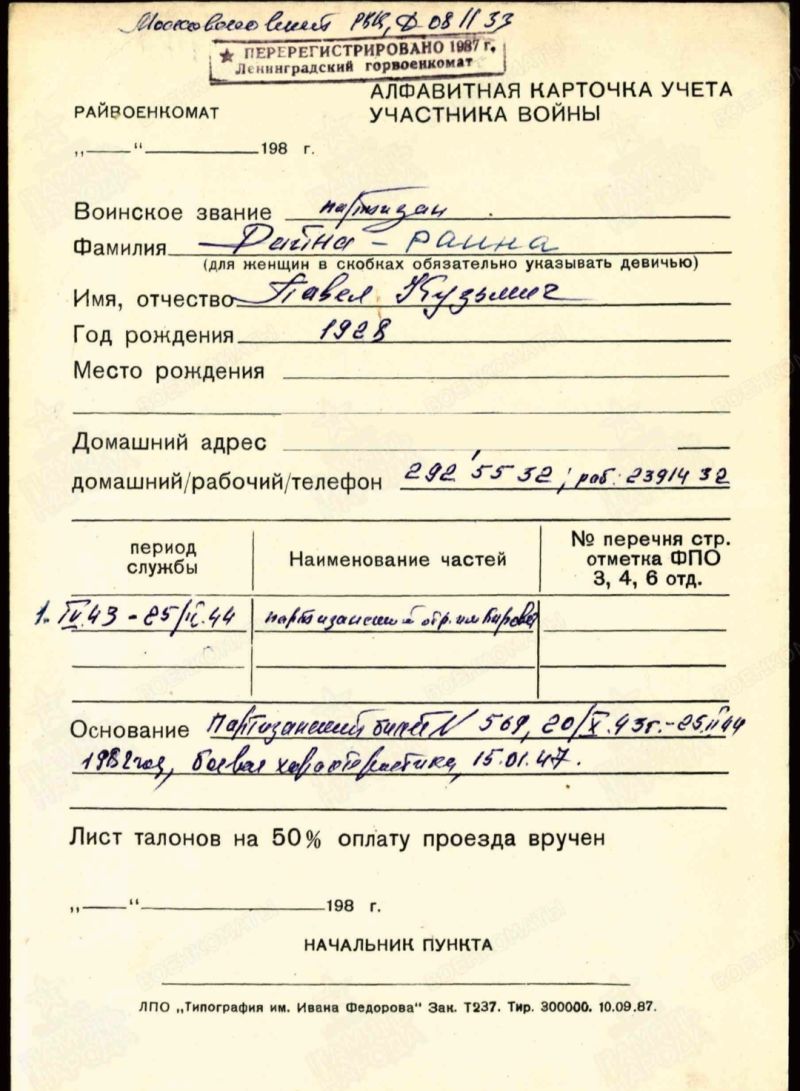 Московский РВК, Ф 081133
ПЕРЕРЕГИСТРИРОВАНО 1987 г.
Ленинградский горвоенкомат
АЛФАВИТНАЯ КАРТОЧКА УЧЕТА
УЧАСТНИКА ВОЙНЫ
РАЙВОЕНКОМАТ
„—“ 198 г.
Воинское звание партизан
Фамилия Райна - раина
(для женщин в скобках обязательно указывать девичью)
Имя, отчество Павел Кузьмич
Год рождения 1928
Место рождения
Домашний адрес
домашний/рабочий/телефон 292 55 32; раб: 2391432
период службы
Наименование частей
№ перечня стр. отметка ФПО 3, 4, 6 отд.
1. IV.43 - 25/II.44 партизанский отр. им Кирова
Основание Партизанский билет N 569, 20/X.43г.-25.II 44
1982 год, боевая характеристика, 15.01.47.
Лист талонов на 50% оплату проезда вручен
„—“ 198 г.
НАЧАЛЬНИК ПУНКТА
ЛПО „Типография им. Ивана Федорова“ Зак. Т237. Тир. 300000. 10.09.87.